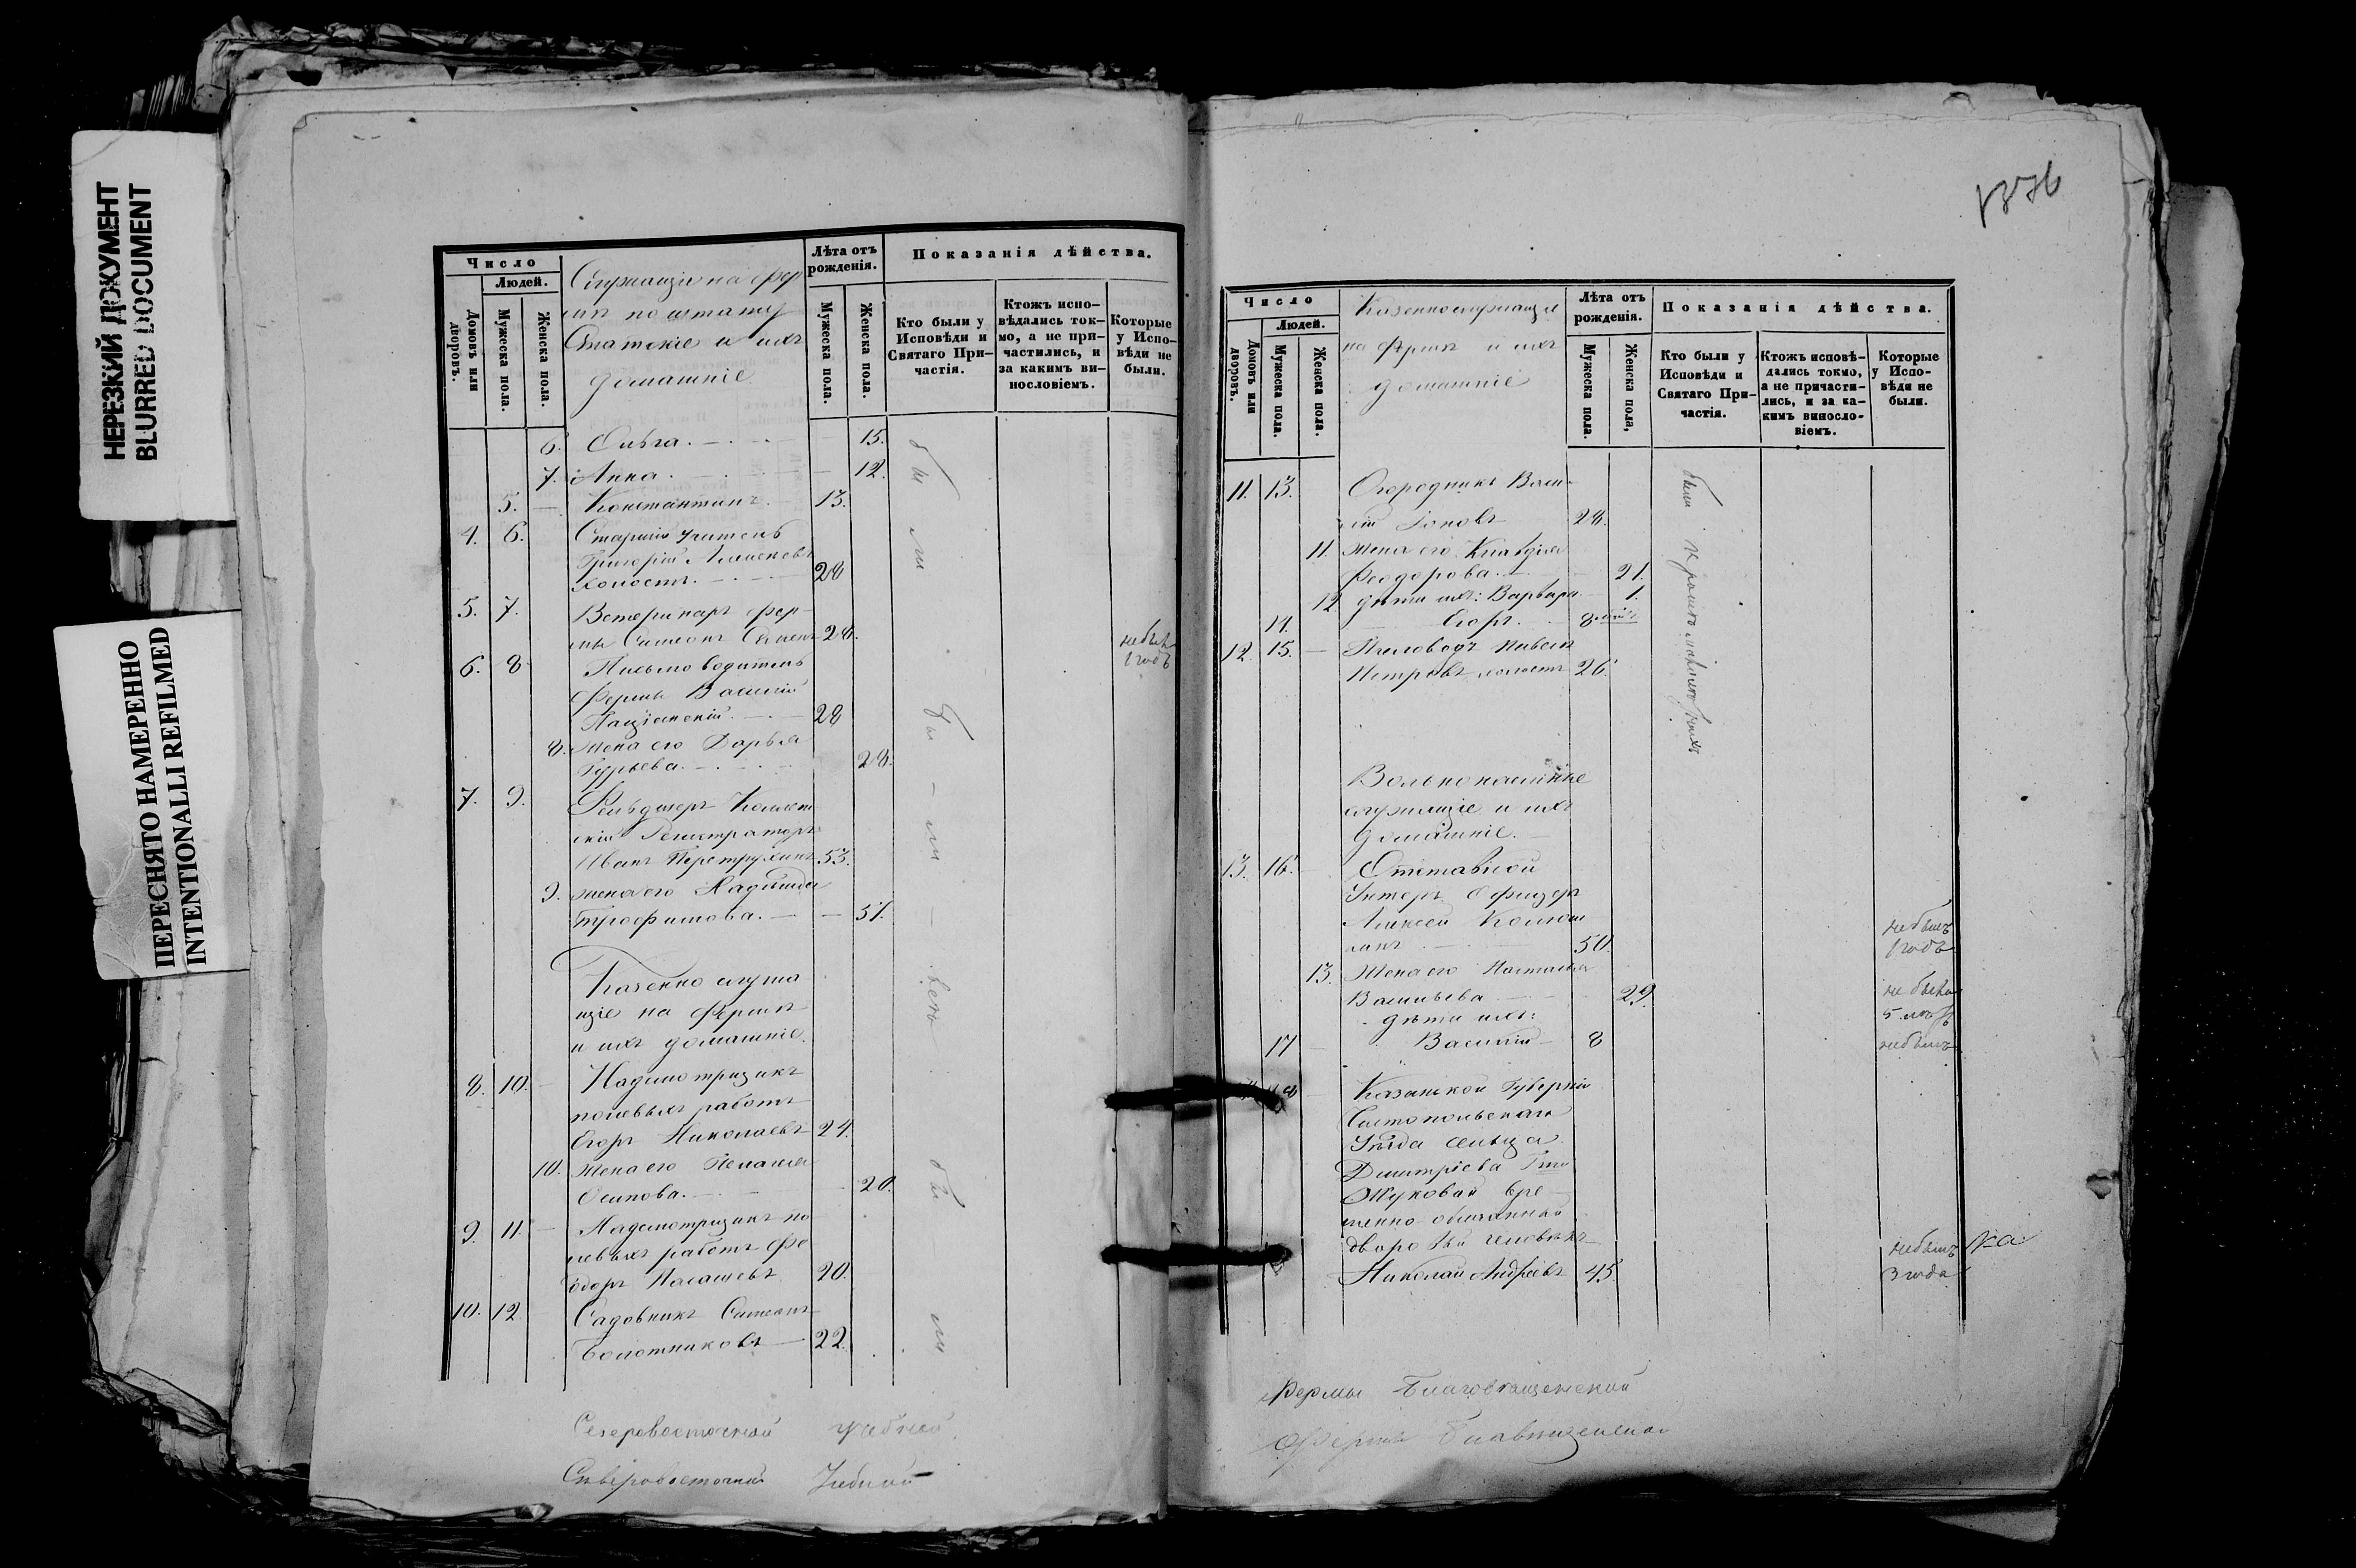 НЕРЕЗКИЙ ДОКУМЕНТ
BLURRED DOCUMENT
ПЕРЕСНЯТО НАМЕРЕННО
INTENTIONALLI REFILMED
Число
Людей.
Домовъ или дворовъ.
Мужеска пола.
Женска пола.
Служащіе на фер
мѣ по штату
Статскіе и ихъ
домашніе
Лѣта отъ рожденія.
Мужеска пола.
Женска пола.
Показанія дѣйства.
Кто были у Исповѣди и Святаго При-частія.
Ктожъ испо-вѣдались ток-мо, а не при-частились, и за какимъ ви-нословіемъ.
Которые у Испо-вѣди не были.
6. Ольга. 15.
7. Анна. 12.
5. Константинъ. 13.
4. 6. Старшій учитель
Григорій
холостъ. 28
5. 7. Ветеринаръ фер-
мы Симеонъ 28. не былъ
1 годъ
6. 8 Письмоводитель
Фермы Василій
28
8. Жена его Дарья
Гурьева. 28.
7. 9. Фельдшеръ Коллеж
скій Регистраторъ
Иванъ Перетрухинъ 53.
9. жена его Надежда
Трофимова. 51.
Казенно служа
щіе на Фермѣ
и ихъ домашніе.
8. 10. Надсмотрщикъ
полевыхъ работъ
Егоръ Николаевъ 24.
10. Жена его Пелагея
Осипова. 20.
9. 11. Надсмотрщикъ по
левыхъ работъ Фе
одоръ 20.
10. 12 Садовникъ Симеонъ
Болотниковъ 22.
Северовосточной учебной
Сѣверовосточной Учебной
1876
Число
Людей.
Домовъ или дворовъ.
Мужеска пола.
Женска пола.
Казеннослужащіе
на Фермѣ и ихъ
домашніе
Лѣта отъ рожденія.
Мужеска пола.
Женска пола,
Показанія дѣйства.
Кто были у Исповѣди и Святаго При-частія.
Ктожъ исповѣ-дались токмо, а не причасти-лись, и за ка-кимъ винosло-віемъ.
Которые у Испо-вѣди не были.
11. 13. Огородникъ Васи-
лій Іоновъ 28.
11. Жена его Клавдія
Феодорова. 21.
12 дѣти ихъ: Варвара 1.
14. Егоръ. 8
были
12. 15. Пчеловодъ Павелъ
Петровъ холостъ 26.
Вольнонаемные
служащіе и ихъ
домашніе.
13. 16. Отставной
Унтеръ Офицеръ
Алексей
50. не былъ
1 годъ
13. Жена его Наталья
Васильева 29. не была
5 лѣтъ
дѣти ихъ:
17 Василій 8 не былъ
Казанской Губерніи
Уѣзда сельца
Дмитріева Гжи
Жуковой вре
менно обязанный
дворовый человѣкъ
Николай Андреевъ 45. не былъ
3 года
Фермы Благовѣщенской
Фермы